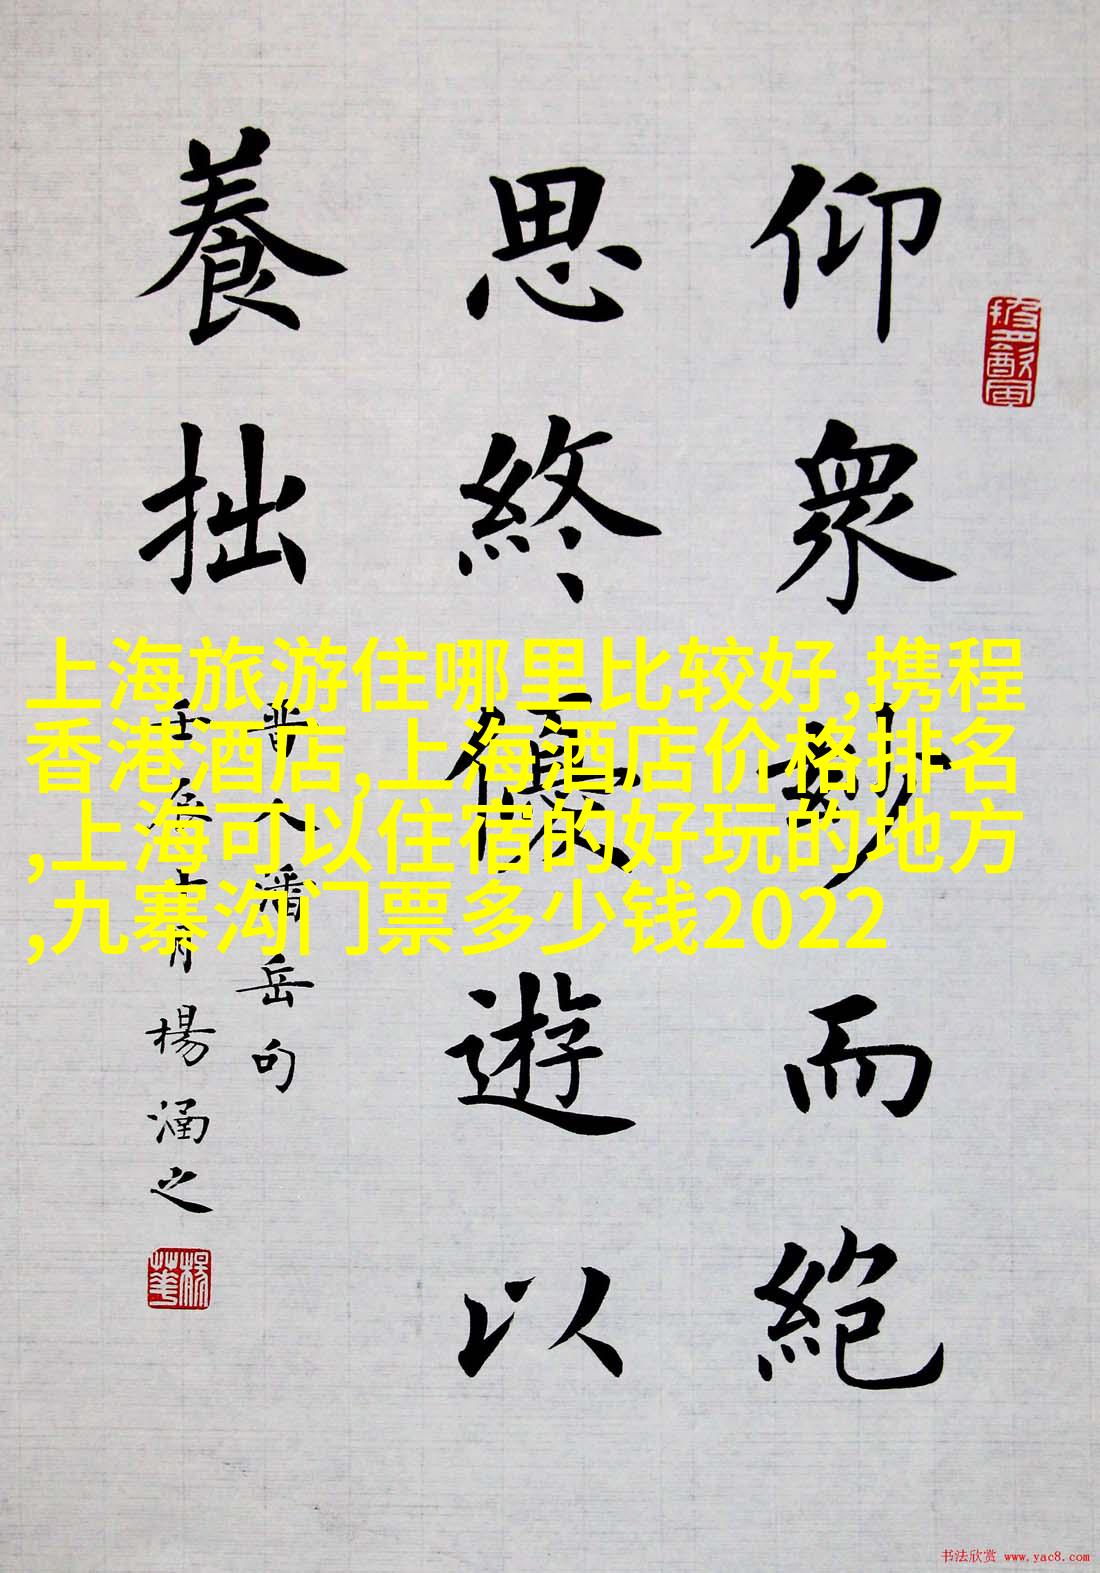 仰眾妙而絕
思終優遊以
養拙
晉人潘岳句
楊涵之
上海旅游住哪里比较好,携程
香港酒店,上海酒店价格排名
,上海可以住宿的好玩的地方
,九寨沟门票多少钱2022
书法欣赏 www.yac8.com